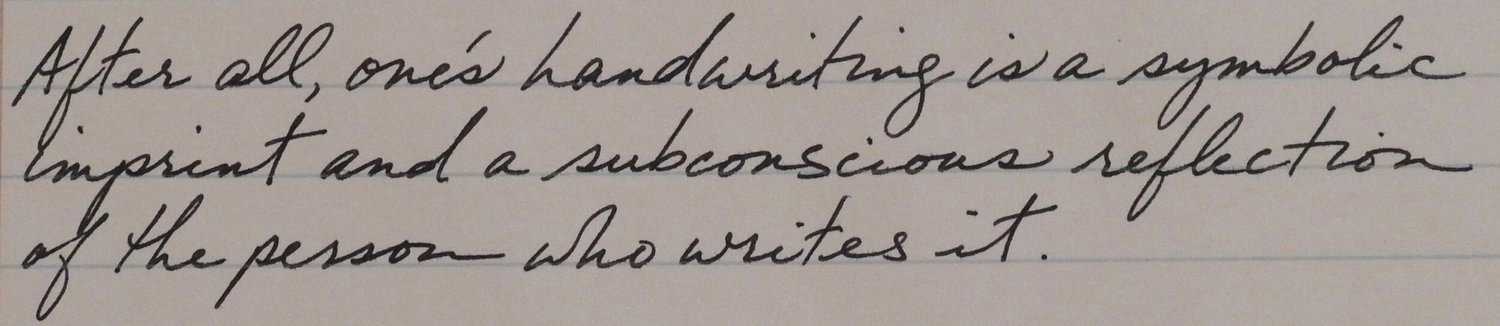 After all, one's handwriting is a symbolic
imprint and a subconscious reflection
of the person who writes it.